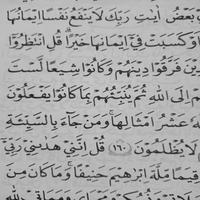 بَعْضُ اٰيٰتِ رَبِّكَ لَا يَنْفَعُ نَفْسًا اِيْمَانُهَا
اَوْ كَسَبَتْ فِيْۤ اِيْمَانِهَا خَيْرًا ؕ قُلِ انْتَظِرُوْۤا
فَرَّقُوْا دِيْنَهُمْ وَكَانُوْا شِيَعًا لَّسْتَ
اِلَى اللّٰهِ ثُمَّ يُنَبِّئُهُمْ بِمَا كَانُوْا يَفْعَلُوْنَ
عَشْرُ اَمْثَالِهَا ۚ وَمَنْ جَآءَ بِالسَّيِّئَةِ
لَا يُظْلَمُوْنَ ﴿۱۶۰﴾ قُلْ اِنَّنِيْ هَدٰىنِيْ رَبِّيْۤ
قِيَمًا مِّلَّةَ اِبْرٰهِيْمَ حَنِيْفًا ۚ وَمَا كَانَ مِنَ